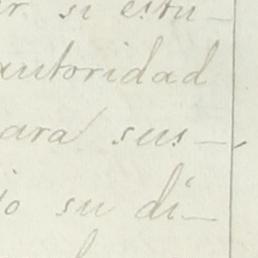 si estu-
autoridad
para sus-
su di-